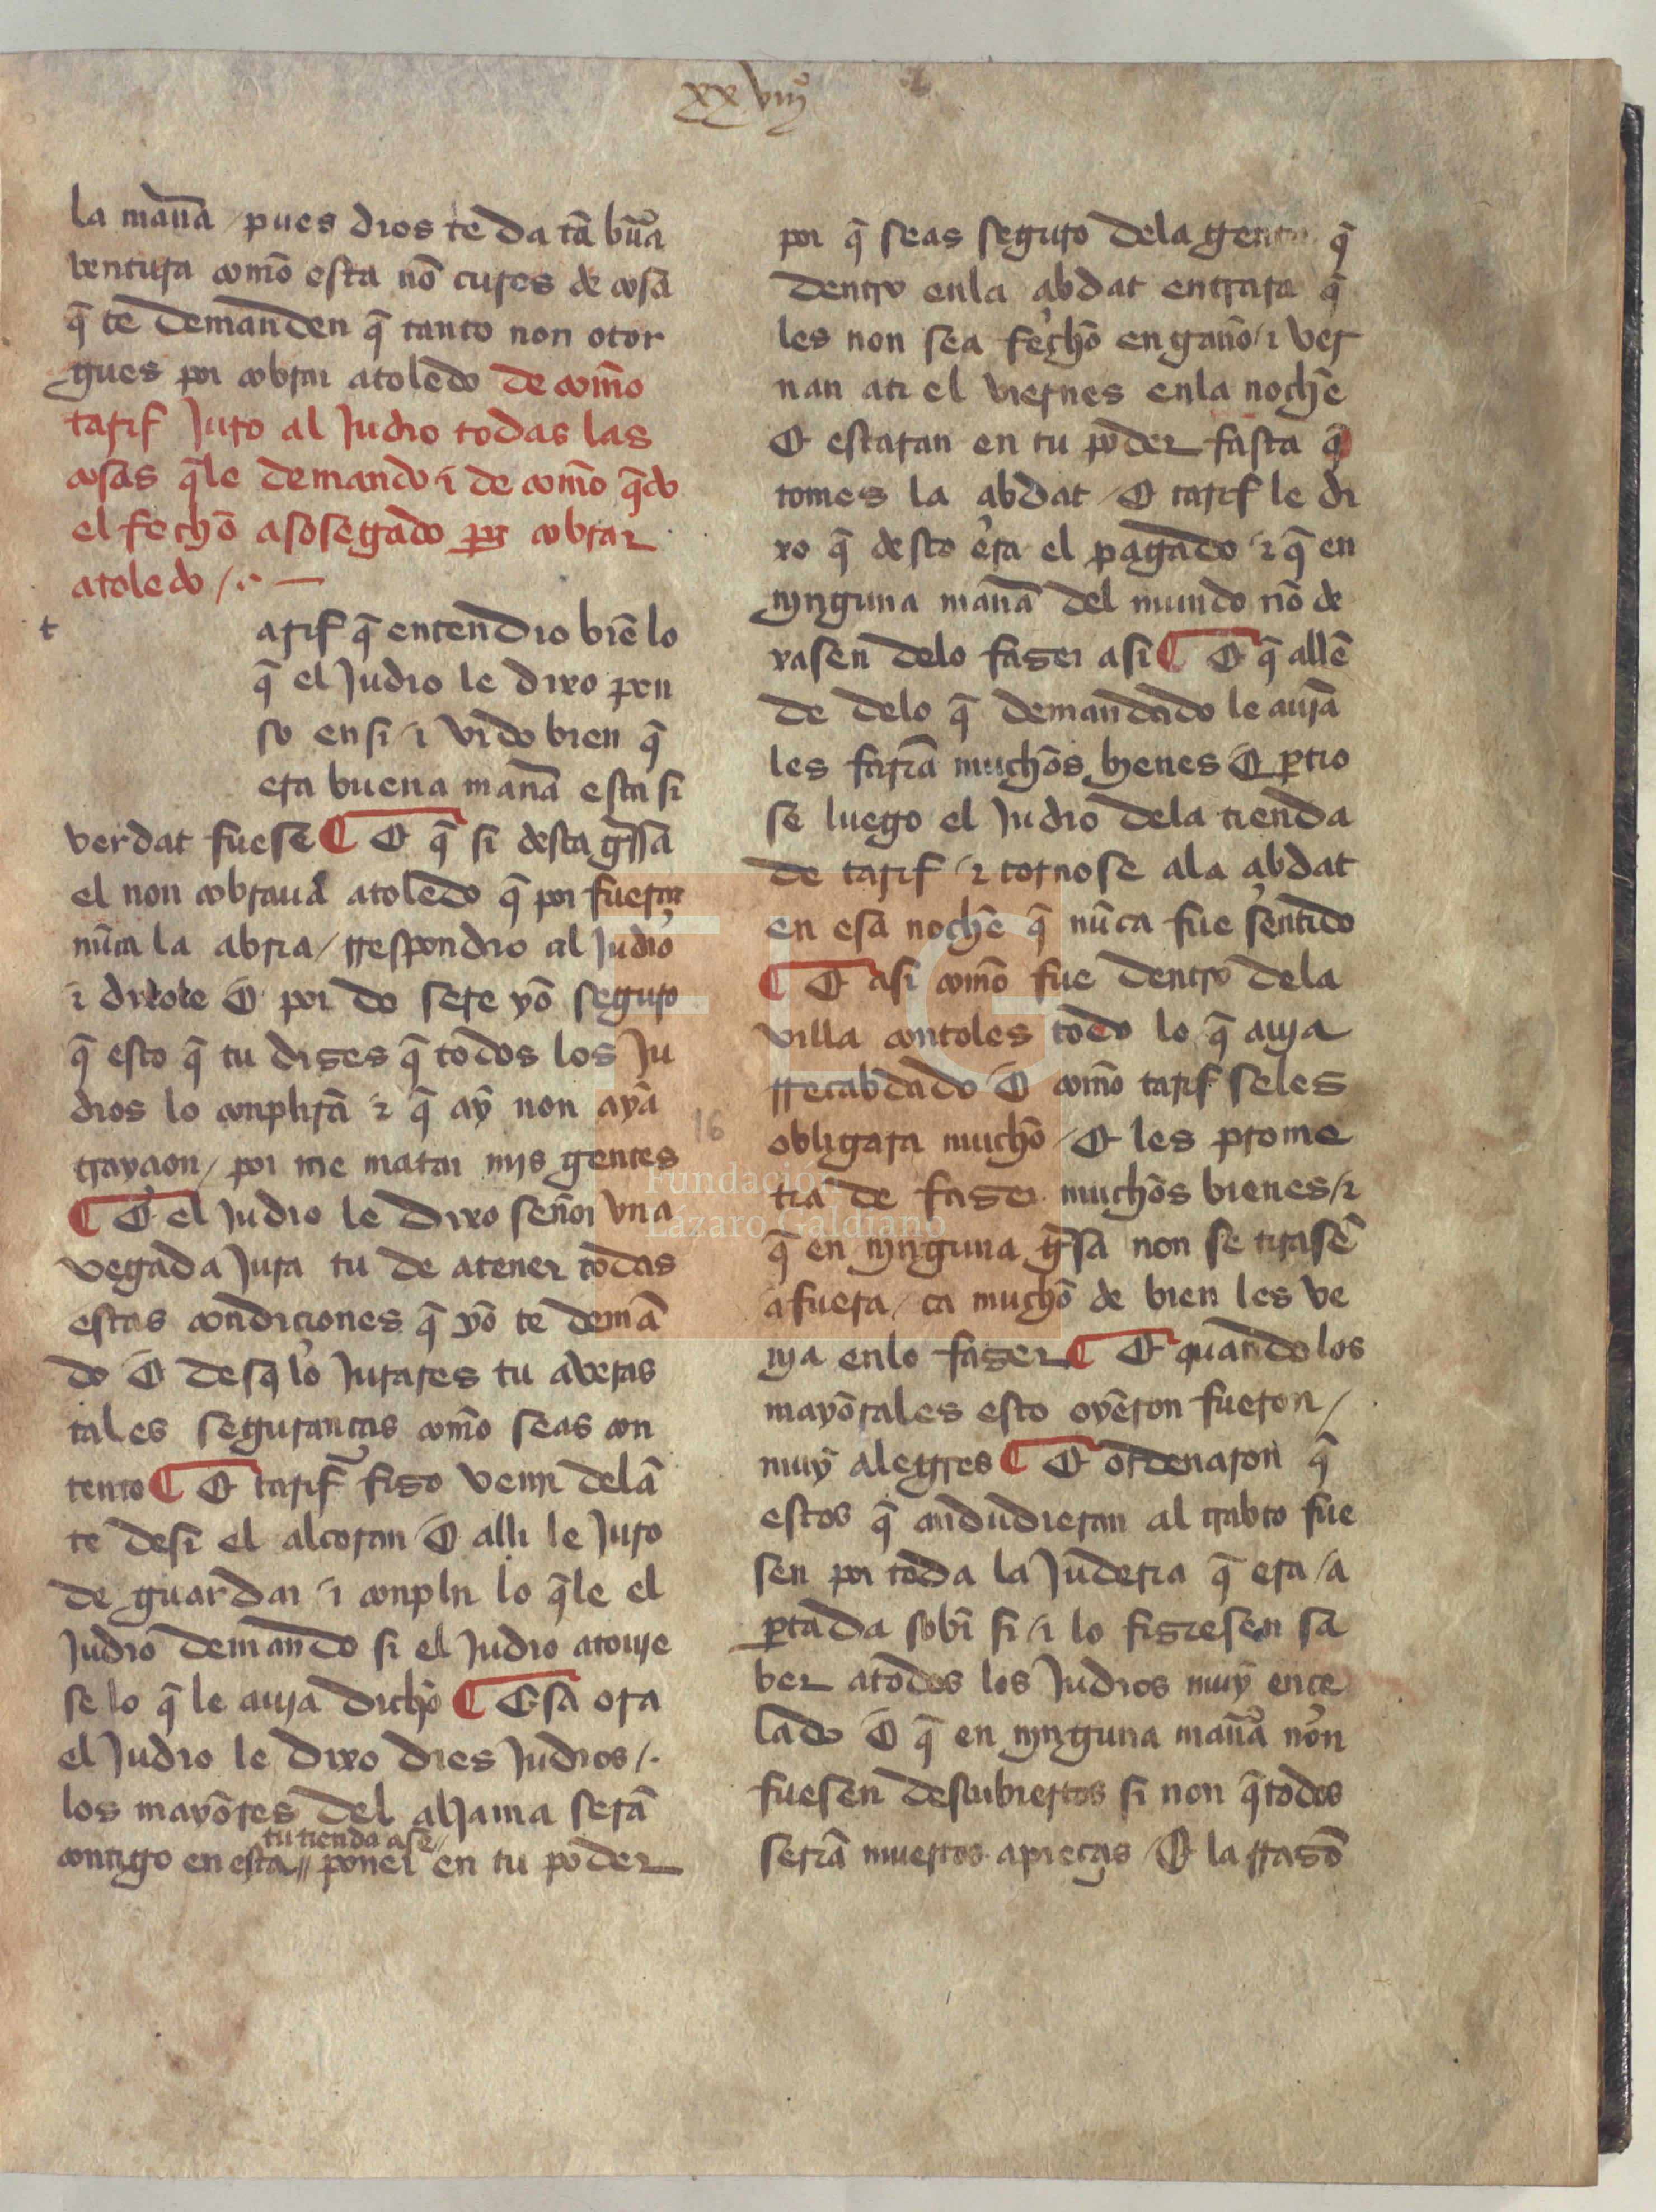 xxviijº
la manã / pues dios te da tã bũa
ventura comõ esta nõ cures de cosa
q̃ te demanden q̃ tanto non otor
gues por cobrar atoledo de comõ
tarif Juro al Judio todas las
cosas q̃le demando i de comõ q̃do
el fechõ asosegado por cobrar
atoledo /.· —
t
arif q̃ entendio biẽ lo
q̃ el Judio le dixo pen
so ensi / i vido bien q̃
era buena manã esta si
verdat fuese ¶ E q̃ si desta gĩsa
el non cobraua atoledo q̃ por fuerça
nũca la abria / rrespondio al Judio
i dixole E por do sere yõ seguro
q̃ esto q̃ tu dises q̃ todos los Ju
dios lo conplirã i q̃ aỹ non ayã
traycion / por me matar mjs gentes
¶ E el Judio le dixo señor vna
vegada Jura tu de atener todas
estas condiciones q̃ yõ te demã
do E desq̃ lo Jurares tu aueras
tales seguranças comõ seas con
tento ¶ E tarif fiso venir delã
te desi el alcoran E alli le Juro
de guardar i conplir lo q̃le el
Judio demando si el Judio atouje
se lo q̃ le auja dichõ ¶ Esa ora
el Judio le dixo dies Judios /.
los mayõres del alJama serã
tu tienda a se
contigo en esta // poner en tu poder
por q̃ seas seguro dela gente q̃
dentro enla çibdat entrara q̃
les non sea fechõ enganõ / i ver
nan ati el viernes enla nochẽ
E estaran en tu poder fasta q̃
tomes la çibdat / E tarif le di
xo q̃ desto era el pagado / i q̃ en
njnguna manã del mundo nõ de
xasen delo faser asi ¶ E q̃ allẽ
de delo q̃ demandado le aujã
les fariã muchõs bienes E ꝑtio
se luego el Judio dela tienda
de tarif / i tornose ala çibdat
en esa nochẽ q̃ nũca fue sentido
¶ E asi comõ fue dentro dela
villa contoles todo lo q̃ auja
rrecabdado E comõ tarif seles
obligara muchõ / E les prome
tia de faser muchõs bienes / i
q̃ en njnguna gĩsa non se tirasẽ
afuera / ca muchõ de bien les ve
nja enlo faser ¶ E quando los
mayõrales esto oyẽron fueron /
muỹ alegres ¶ E ordenaron q̃
estos q̃ andudieran al trabto fue
sen por toda la Juderia q̃ era / a
ꝑtada sobr̃ si / i lo fisiesen sa
ber atodos los Judios muỹ ence
lado E q̃ en njnguna manã non
fuesen descubiertos si non q̃todos
seriã muertos apieças / E la rrasõ
16
FLG
Fundación
Lázaro Galdiano